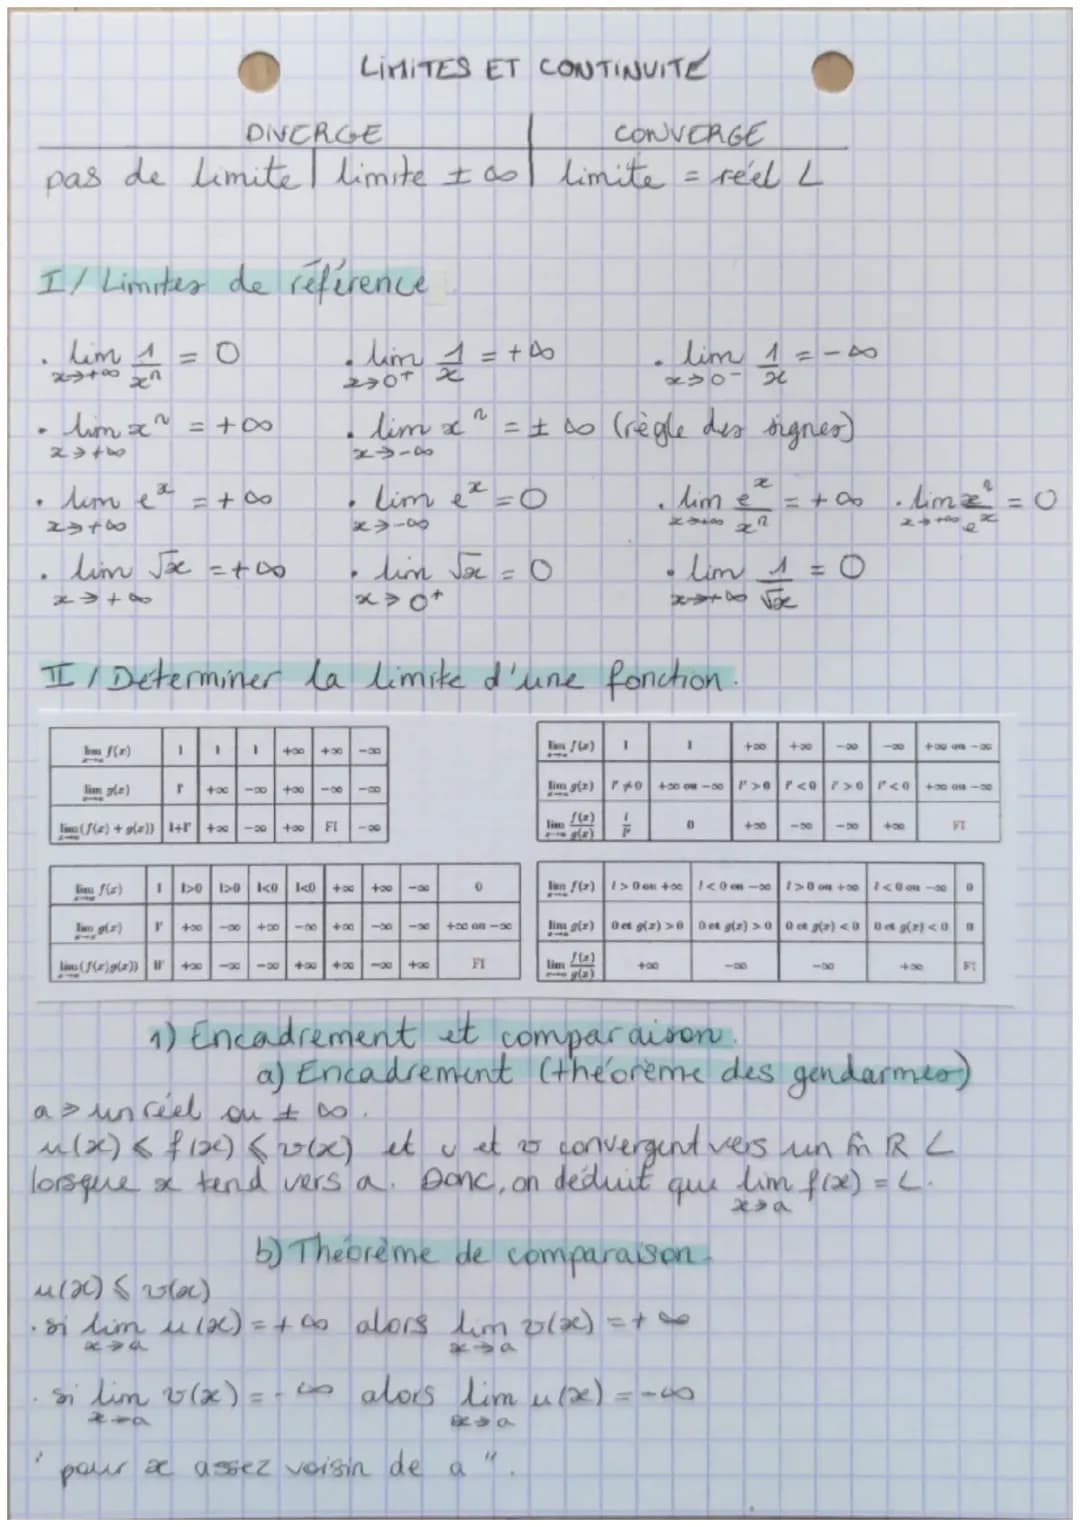 LIMITES ET CONTINUITÉ
DIVERGE | CONVERGE
pas de limite | limite ±∞ | limite = réel L
I / Limites de référence
• lim x→+∞ 1/xⁿ = 0 • lim x→0⁺ 1/x = +∞ • lim x→0⁻ 1/x = -∞
• lim x→+∞ xⁿ = +∞ • lim x→-∞ xⁿ = ±∞ (règle des signes)
• lim x→+∞ eˣ = +∞ • lim x→-∞ eˣ = 0 • lim x→+∞ eˣ/xⁿ = +∞ • lim x→+∞ xⁿ/eˣ = 0
• lim x→+∞ √x = +∞ • lim x→0⁺ √x = 0 • lim x→+∞ 1/√x = 0
II / Déterminer la limite d'une fonction.
lim f(x) | l | l | l | +∞ | +∞ | -∞
lim g(x) | l' | +∞ | -∞ | +∞ | -∞ | -∞
lim (f(x) + g(x)) | l+l' | +∞ | -∞ | +∞ | FI | -∞
lim f(x) | l | l | +∞ | +∞ | -∞ | -∞ | +∞ ou -∞
lim g(x) | l' ≠ 0 | +∞ ou -∞ | l' > 0 | l' < 0 | l' > 0 | l' < 0 | +∞ ou -∞
lim f(x)/g(x) | l/l' | 0 | +∞ | -∞ | -∞ | +∞ | FI
lim f(x) | l | l>0 | l>0 | l<0 | l<0 | +∞ | +∞ | -∞ | 0
lim g(x) | l' | +∞ | -∞ | +∞ | -∞ | +∞ | -∞ | -∞ | +∞ ou -∞
lim (f(x)g(x)) | ll' | +∞ | -∞ | -∞ | +∞ | +∞ | -∞ | +∞ | FI
lim f(x) | l > 0 ou +∞ | l < 0 ou -∞ | l > 0 ou +∞ | l < 0 ou -∞ | 0
lim g(x) | 0 et g(x) > 0 | 0 et g(x) > 0 | 0 et g(x) < 0 | 0 et g(x) < 0 | 0
lim f(x)/g(x) | +∞ | -∞ | -∞ | +∞ | FI
1) Encadrement et comparaison.
a) Encadrement (théorème des gendarmes)
a → un réel ou ± ∞.
u(x) ⩽ f(x) ⩽ v(x) et u et v convergent vers un m̂ R L
lorsque x tend vers a. Donc, on déduit que lim x→a f(x) = L.
b) Théorème de comparaison.
u(x) ⩽ v(x)
• si lim x→a u(x) = +∞ alors lim x→a v(x) = +∞
• si lim x→a v(x) = -∞ alors lim x→a u(x) = -∞
" pour x assez voisin de a ".